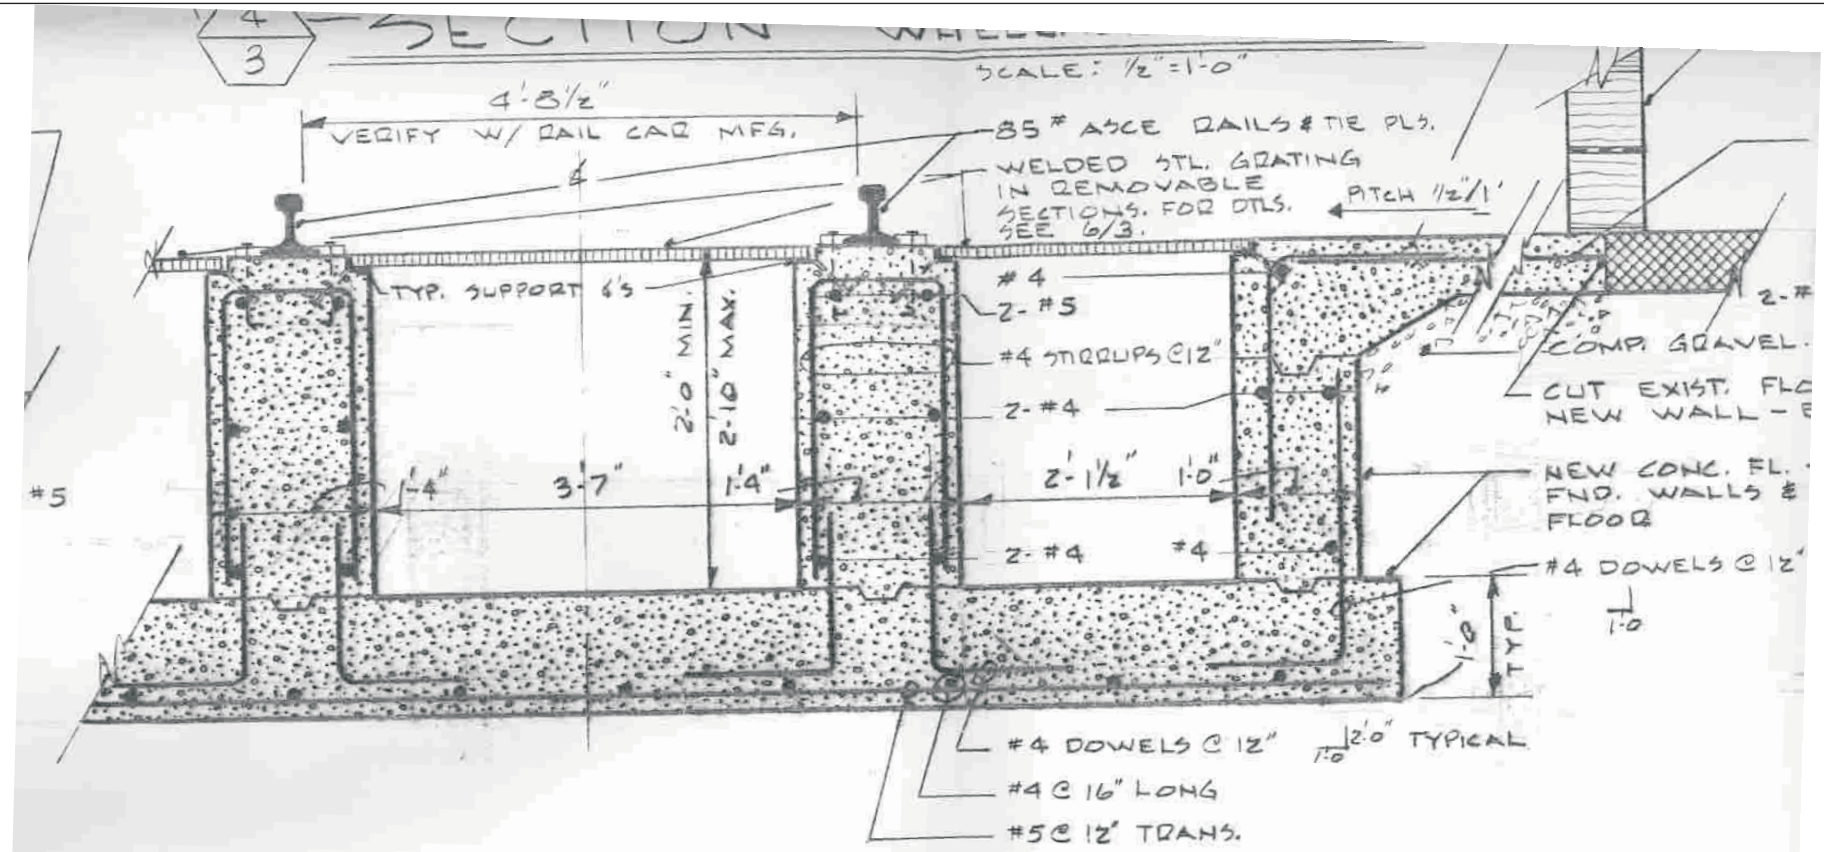 4
3
SECTION
SCALE: 1/2"=1'-0"
4'-8 1/2"
VERIFY W/ RAIL CAR MFG.
85# ASCE RAILS & TIE PLS.
WELDED STL. GRATING
IN REMOVABLE
SECTIONS. FOR DTLS.
SEE 6/3.
PITCH 1/2"/1'
TYP. SUPPORT L'S
2'-0" MIN.
2'-10" MAX.
#4
2-#5
#4 STIRRUPS @12"
2-#4
2-#
COMP. GRAVEL.
CUT EXIST.
NEW WALL -
#5
1'-4"
3'-7"
1'-4"
2'-1 1/2"
1'-0"
NEW CONC. FL.
FND. WALLS &
FLOOR
2-#4
#4
#4 DOWELS @ 12"
1'-0
1'-0"
TYP.
#4 DOWELS @ 12" 1'-0 2'-0" TYPICAL
#4 @ 16" LONG
#5 @ 12" TRANS.